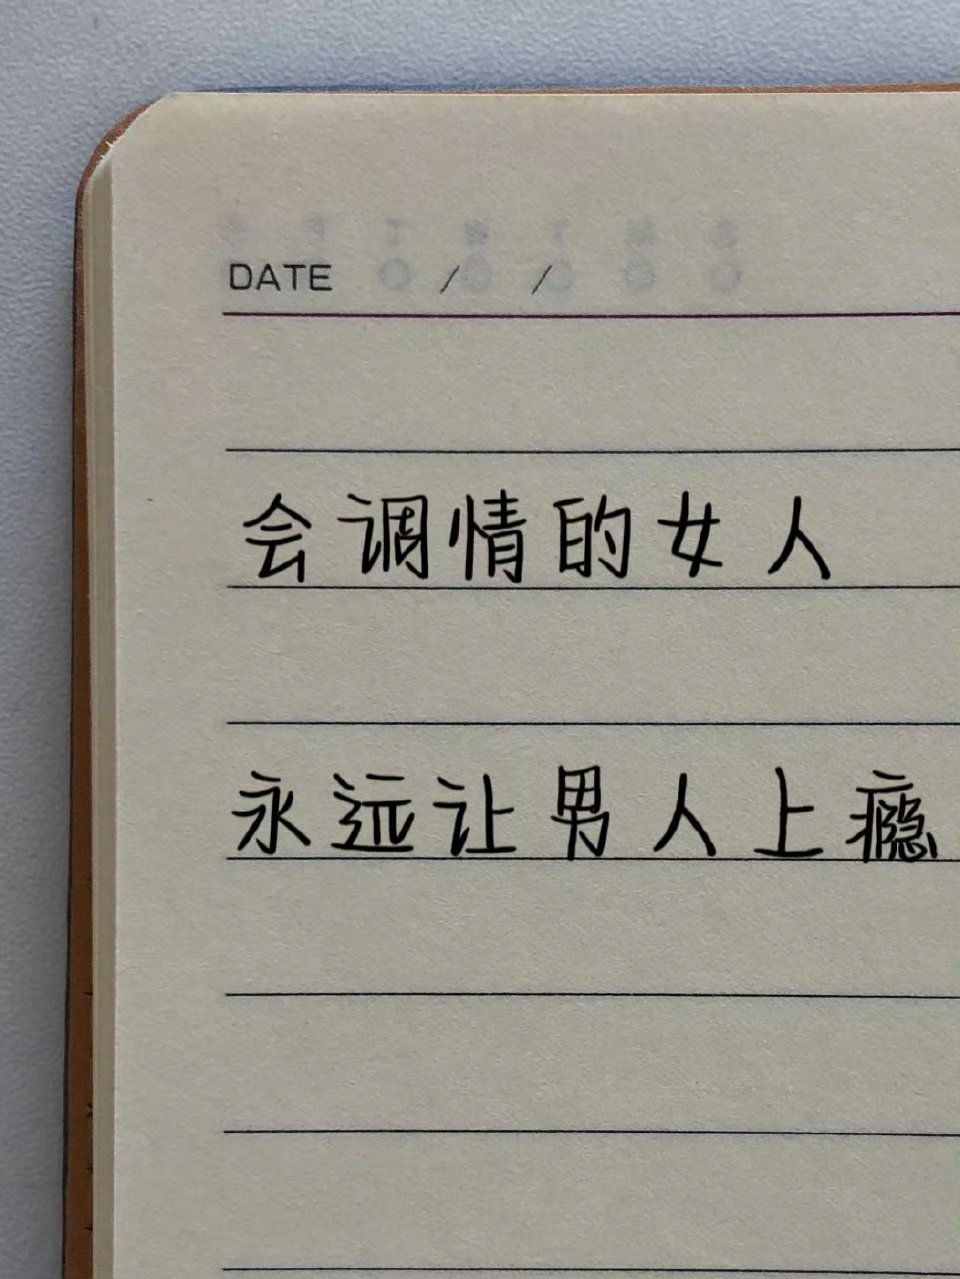 DATE / /
会调情的女人
永远让男人上瘾